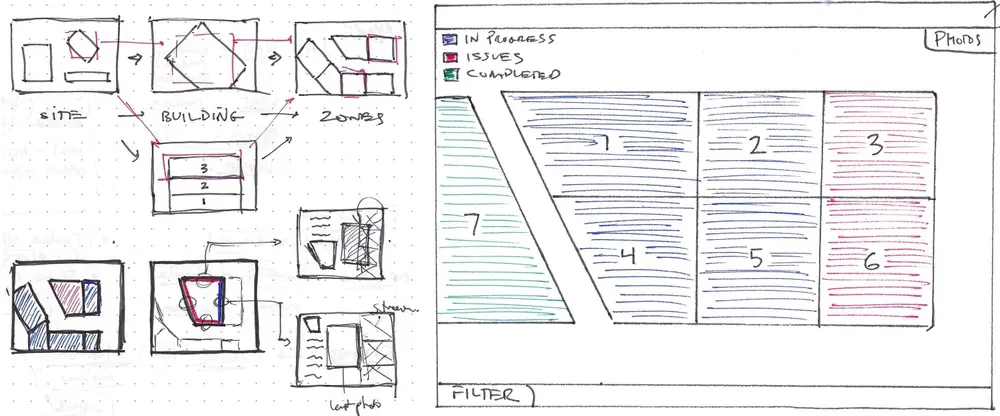 SITE → BUILDING → ZONES
3
2
1
last photo
IN PROGRESS
ISSUES
COMPLETED
PHOTOS
1 2 3
7
4 5 6
FILTER